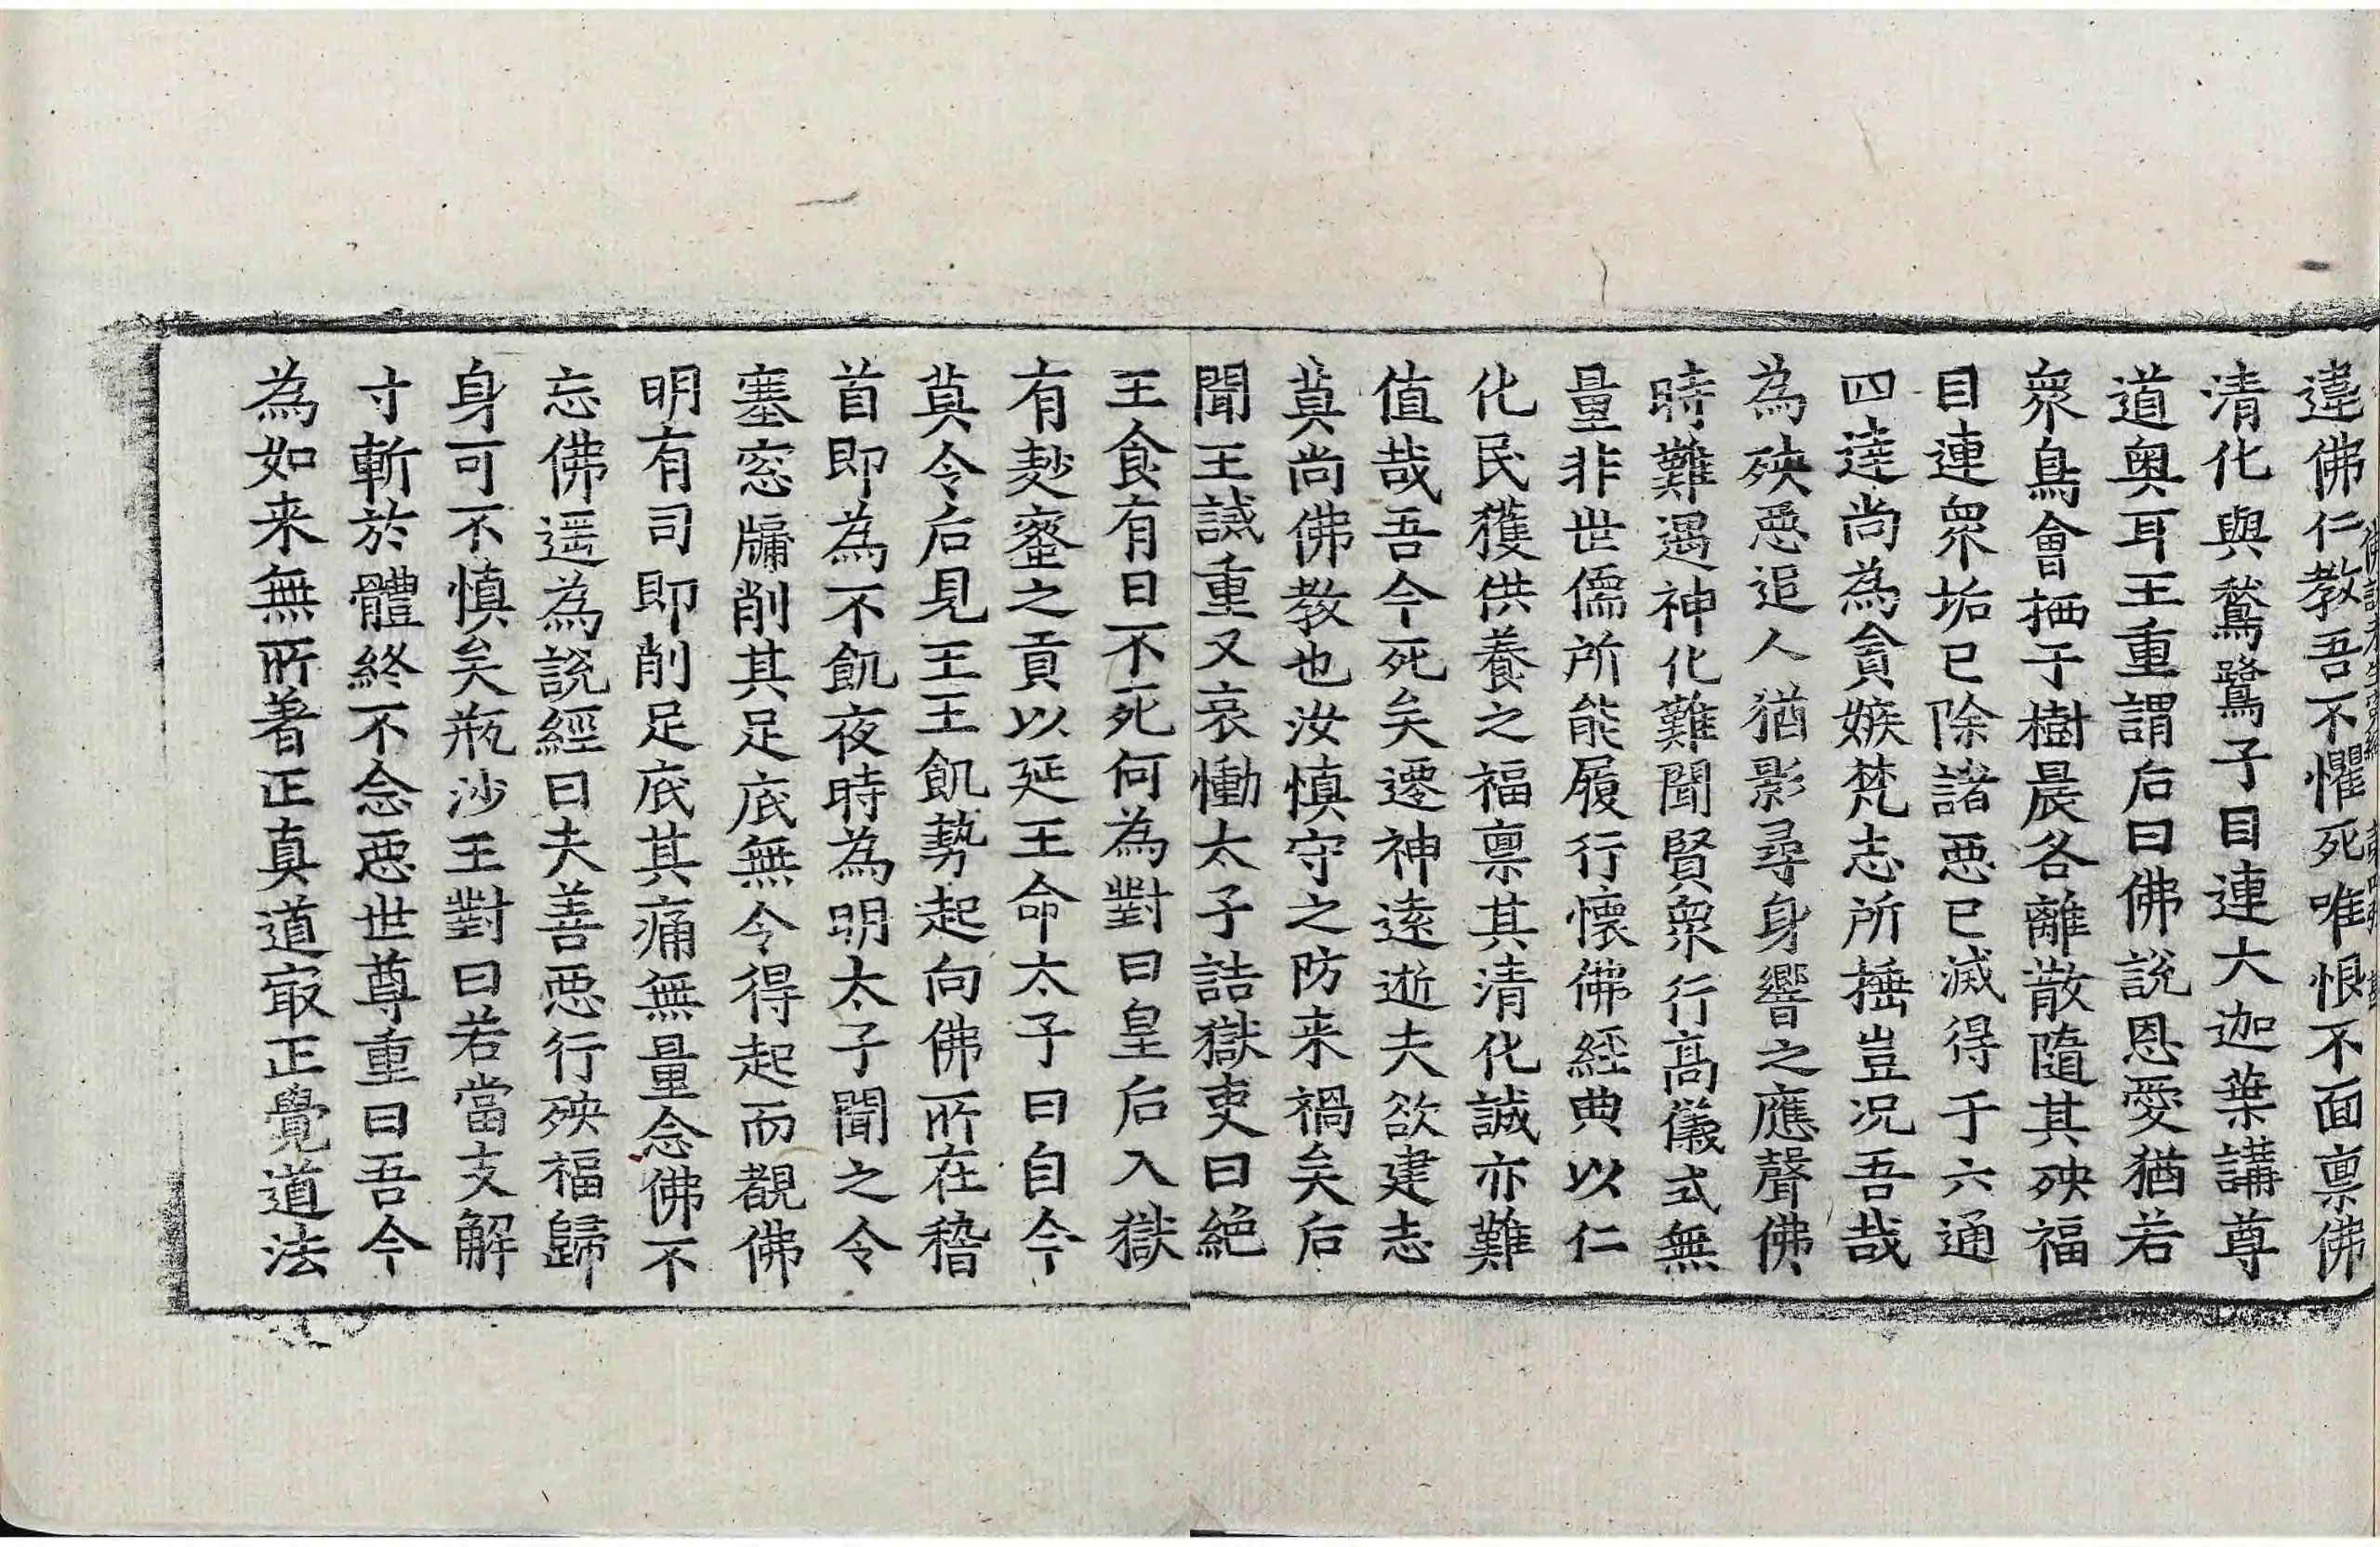 違佛仁教吾不懼死唯恨不面禀佛
清化與鶖鷺子目連大迦葉講尊
道奧耳王重謂后曰佛說恩愛猶若
衆鳥會栖于樹晨各離散隨其殃福
目連衆垢已除諸惡已滅得于六通
四達尚為貪嫉梵志所捶豈况吾哉
為殃惡追人猶影尋身響之應聲佛
時難遇神化難聞賢衆行高儀式無
量非世儒所能履行懷佛經典以仁
化民獲供養之福禀其清化誠亦難
值哉吾今死矣遷神逺逝夫欲建志
莫尚佛教也汝慎守之防来禍矣后
聞王誡重又哀慟太子詰獄吏曰絶
王食有日不死何為對曰皇后入獄
有麨蜜之貢以延王命太子曰自今
莫令后見王王飢勢起向佛所在稽
首即為不飢夜時為明太子聞之令
塞窓牖削其足底無令得起而覩佛
明有司即削足底其痛無量念佛不
忘佛遥為說經曰夫善惡行殃福歸
身可不慎矣瓶沙王對曰若當支解
寸斬於體終不念惡世尊重曰吾今
為如来無所著正真道冣正覺道法